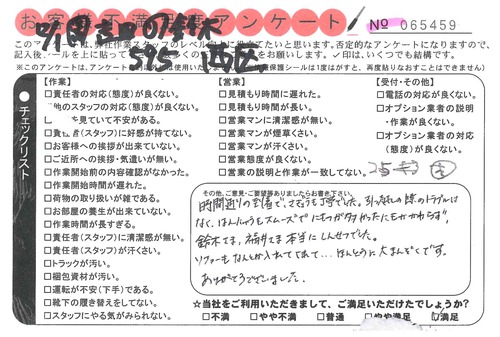 お客様不満足度アンケート
№ 065459
このアンケートは、弊社作業スタッフのレベル向上に役立てたいと思います。否定的なアンケートになりますので、
記入後、シールを上に貼って お願いします。✓印は、いくつでも結構です。
25才
【作業】
□責任者の対応(態度)が良くない。
他のスタッフの対応(態度)が良くない。
を見ていて不安がある。
者(スタッフ)に好感が持てない。
□お客様への挨拶が出来ていない。
□ご近所への挨拶・気遣いが無い。
□作業開始前の内容確認がなかった。
□作業開始時間が遅れた。
□荷物の取り扱いが雑である。
□お部屋の養生が出来ていない。
□作業時間が長すぎる。
□責任者(スタッフ)に清潔感が無い。
□責任者(スタッフ)が汗くさい。
□トラックが汚い。
□梱包資材が汚い。
□運転が不安(下手)である。
□靴下の履き替えをしてない。
□スタッフにやる気がみられない。
【営業】
□見積もり時間に遅れた。
□見積もり時間が長い。
□営業マンに清潔感が無い。
□営業マンが煙草くさい。
□営業マンが汗くさい。
□営業態度が良くない。
□営業の説明と作業が一致してない。
【受付・その他】
□電話の対応が良くない。
□オプション業者の説明
・作業が良くない。
□オプション業者の対応
(態度)が良くない。
チェックリスト
その他、ご意見・ご要望等ありましたらお書き下さい。
なく、ほんとにスムーズで
鈴木さま、福井さま本当にしんせつでした。
ソファーもなんとか入れてくれて…ほんとうに大まんぞくです。
ありがとうございました。
☆当社をご利用いただきまして、ご満足いただけたでしょうか?
□不満 □やや不満 □普通 □やや満足 □満足